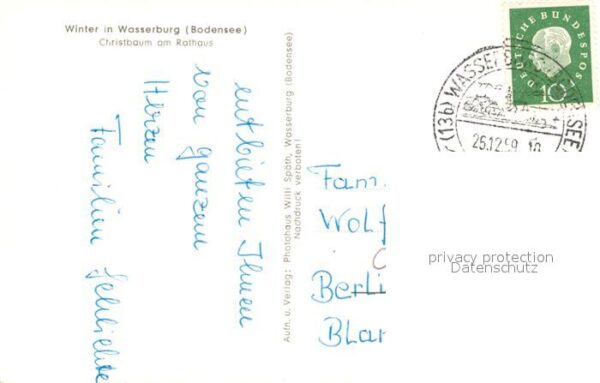 Winter in Wasserburg (Bodensee)
Christbaum am Rathaus
entbieten Ihnen
von ganzem
Herzen
Familien
Aufn. u. Verlag: Photohaus Willi Späth, Wasserburg (Bodensee)
Nachdruck verboten!
Fam.
Wolf
Berli
Blan
DEUTSCHE BUNDESPOST
10
(13b) WASSERBURG
25.12.59
privacy protection
Datenschutz